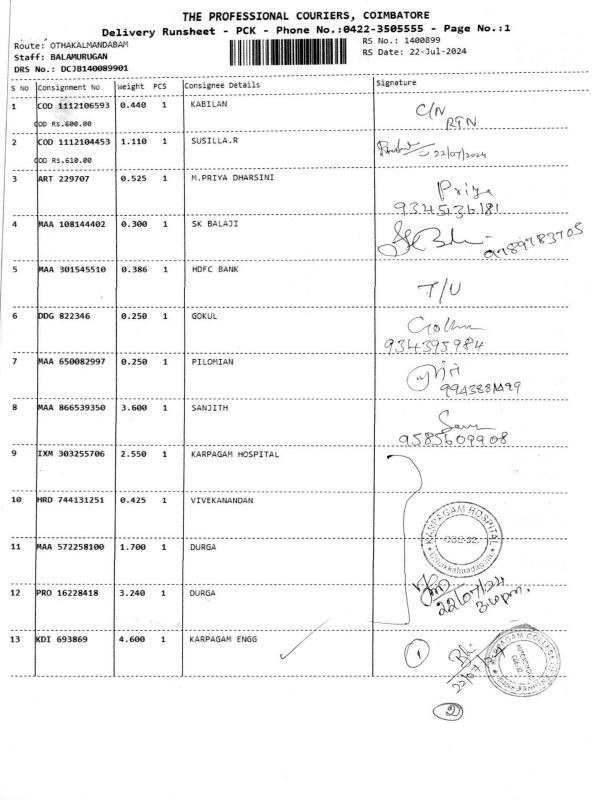 THE PROFESSIONAL COURIERS, COIMBATORE
Delivery Runsheet - PCK - Phone No.:0422-3505555 - Page No.:1
Route: OTHAKALMANDABAM RS No.: 1400899
Staff: BALAMURUGAN RS Date: 22-Jul-2024
DRS No.: DCJB140089901
S No Consignment No Weight PCS Consignee Details Signature
1 COD 1112106593 0.440 1 KABILAN C/N
COD Rs.600.00 RTN
2 COD 1112104453 1.110 1 SUSILLA.R 22/07/2024
COD Rs.610.00
3 ART 229707 0.525 1 M.PRIYA DHARSINI Priya
9345136181
4 MAA 108144402 0.300 1 SK BALAJI 9789783705
5 MAA 301545510 0.386 1 HDFC BANK T/U
6 DDG 822346 0.250 1 GOKUL
934395984
7 MAA 650082997 0.250 1 PILOMIAN
8 MAA 866539350 3.600 1 SANJITH
9585609908
9 IXM 303255706 2.550 1 KARPAGAM HOSPITAL
10 HRD 744131251 0.425 1 VIVEKANANDAN
KARPAGAM HOSPITAL
CBE-32.
11 MAA 572258100 1.700 1 DURGA
12 PRO 16228418 3.240 1 DURGA 22/07/24
3:00pm.
13 KDI 693869 4.600 1 KARPAGAM ENGG 1
2